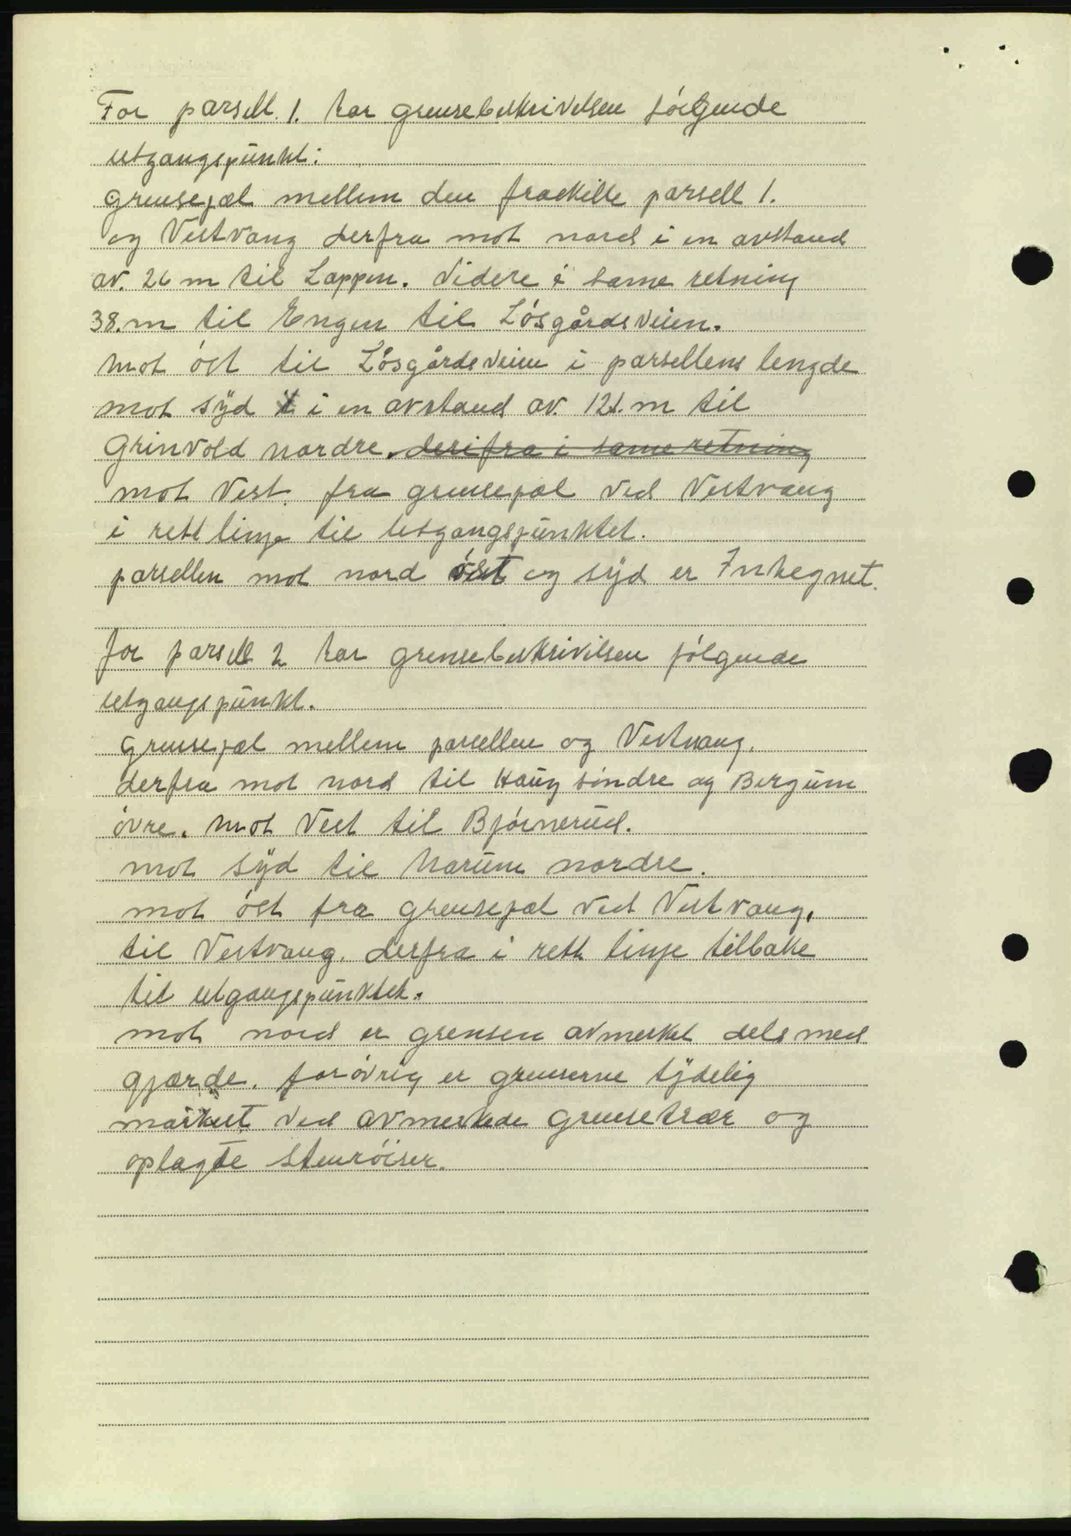 For parsell 1. har grensebeskrivelsen følgende
utgangspunkt:
grensepæl mellem den fraskilte parsell 1.
og Vestvang derfra mot nord i en avstand
av. 26 m til Lappen. Videre i same retning
38.m til Engen til Løsgårdsveien.
mot øst til Løsgårdsveien i parsellens lengde
mot syd i en avstand av. 121.m til
Grinvold nordre. derifra i same retning
mot Vest. fra grensepæl ved Vestvang
i rett linje til utgangspunktet.
parsellen mot nord øst og syd er Inhegnet.
for parsell 2 har grensebeskrivelsen følgende
utgangspunkt.
Grensepæl mellem parsellen og Vestvang.
derfra mot nord til Haug søndre og Bergum
øvre. mot Vest til Bjørnerud.
mot syd til Narum nordre.
mot øst fra grensepæl ved Vestvang.
til Vestvang. derfra i rett linje tilbake
til utgangspunktet.
mot nord er grensen avmerket dels med
gjærde. forøvrig er grenserne tydelig
market ved avmerkede grensetrær og
oplagte stenrøiser.